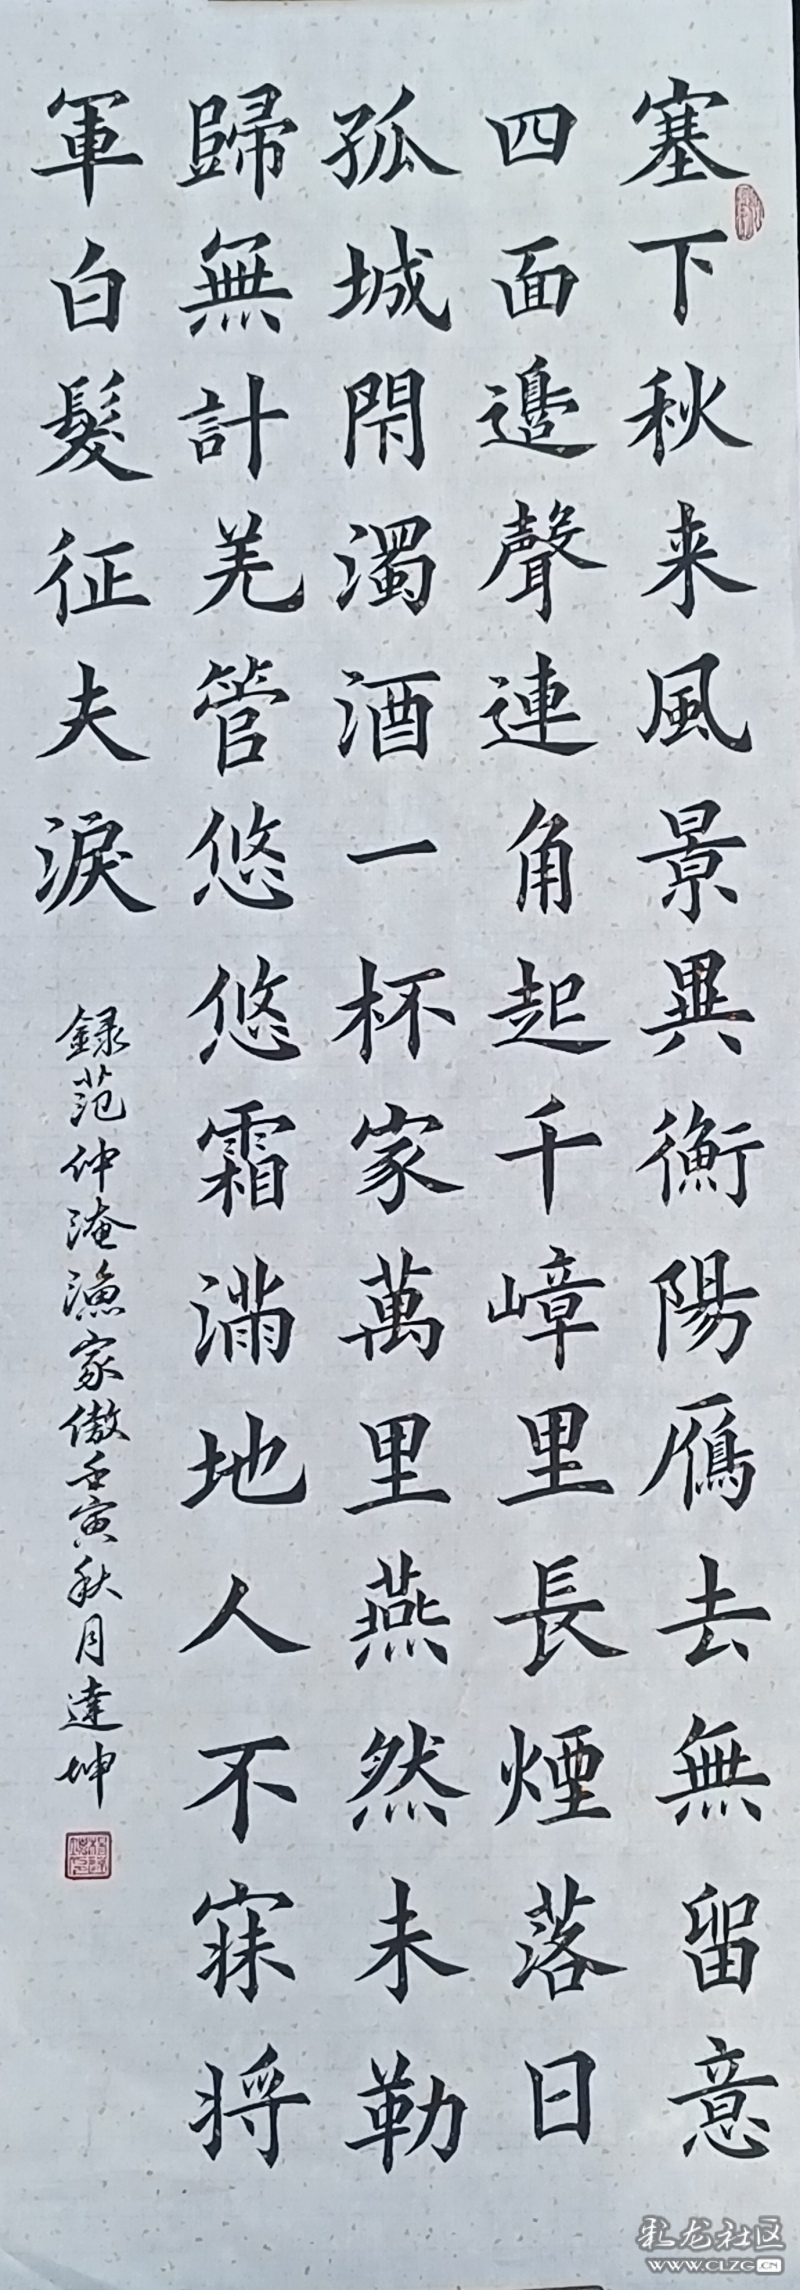 塞下秋来風景異衡陽雁去無留意
四面邊聲連角起千嶂里長煙落日
孤城閉濁酒一杯家萬里燕然未勒
歸無計羌管悠悠霜滿地人不寐將
軍白髮征夫淚
録范仲淹漁家傲壬寅秋月達坤
彩龙社区
WWW.CLZG.CN